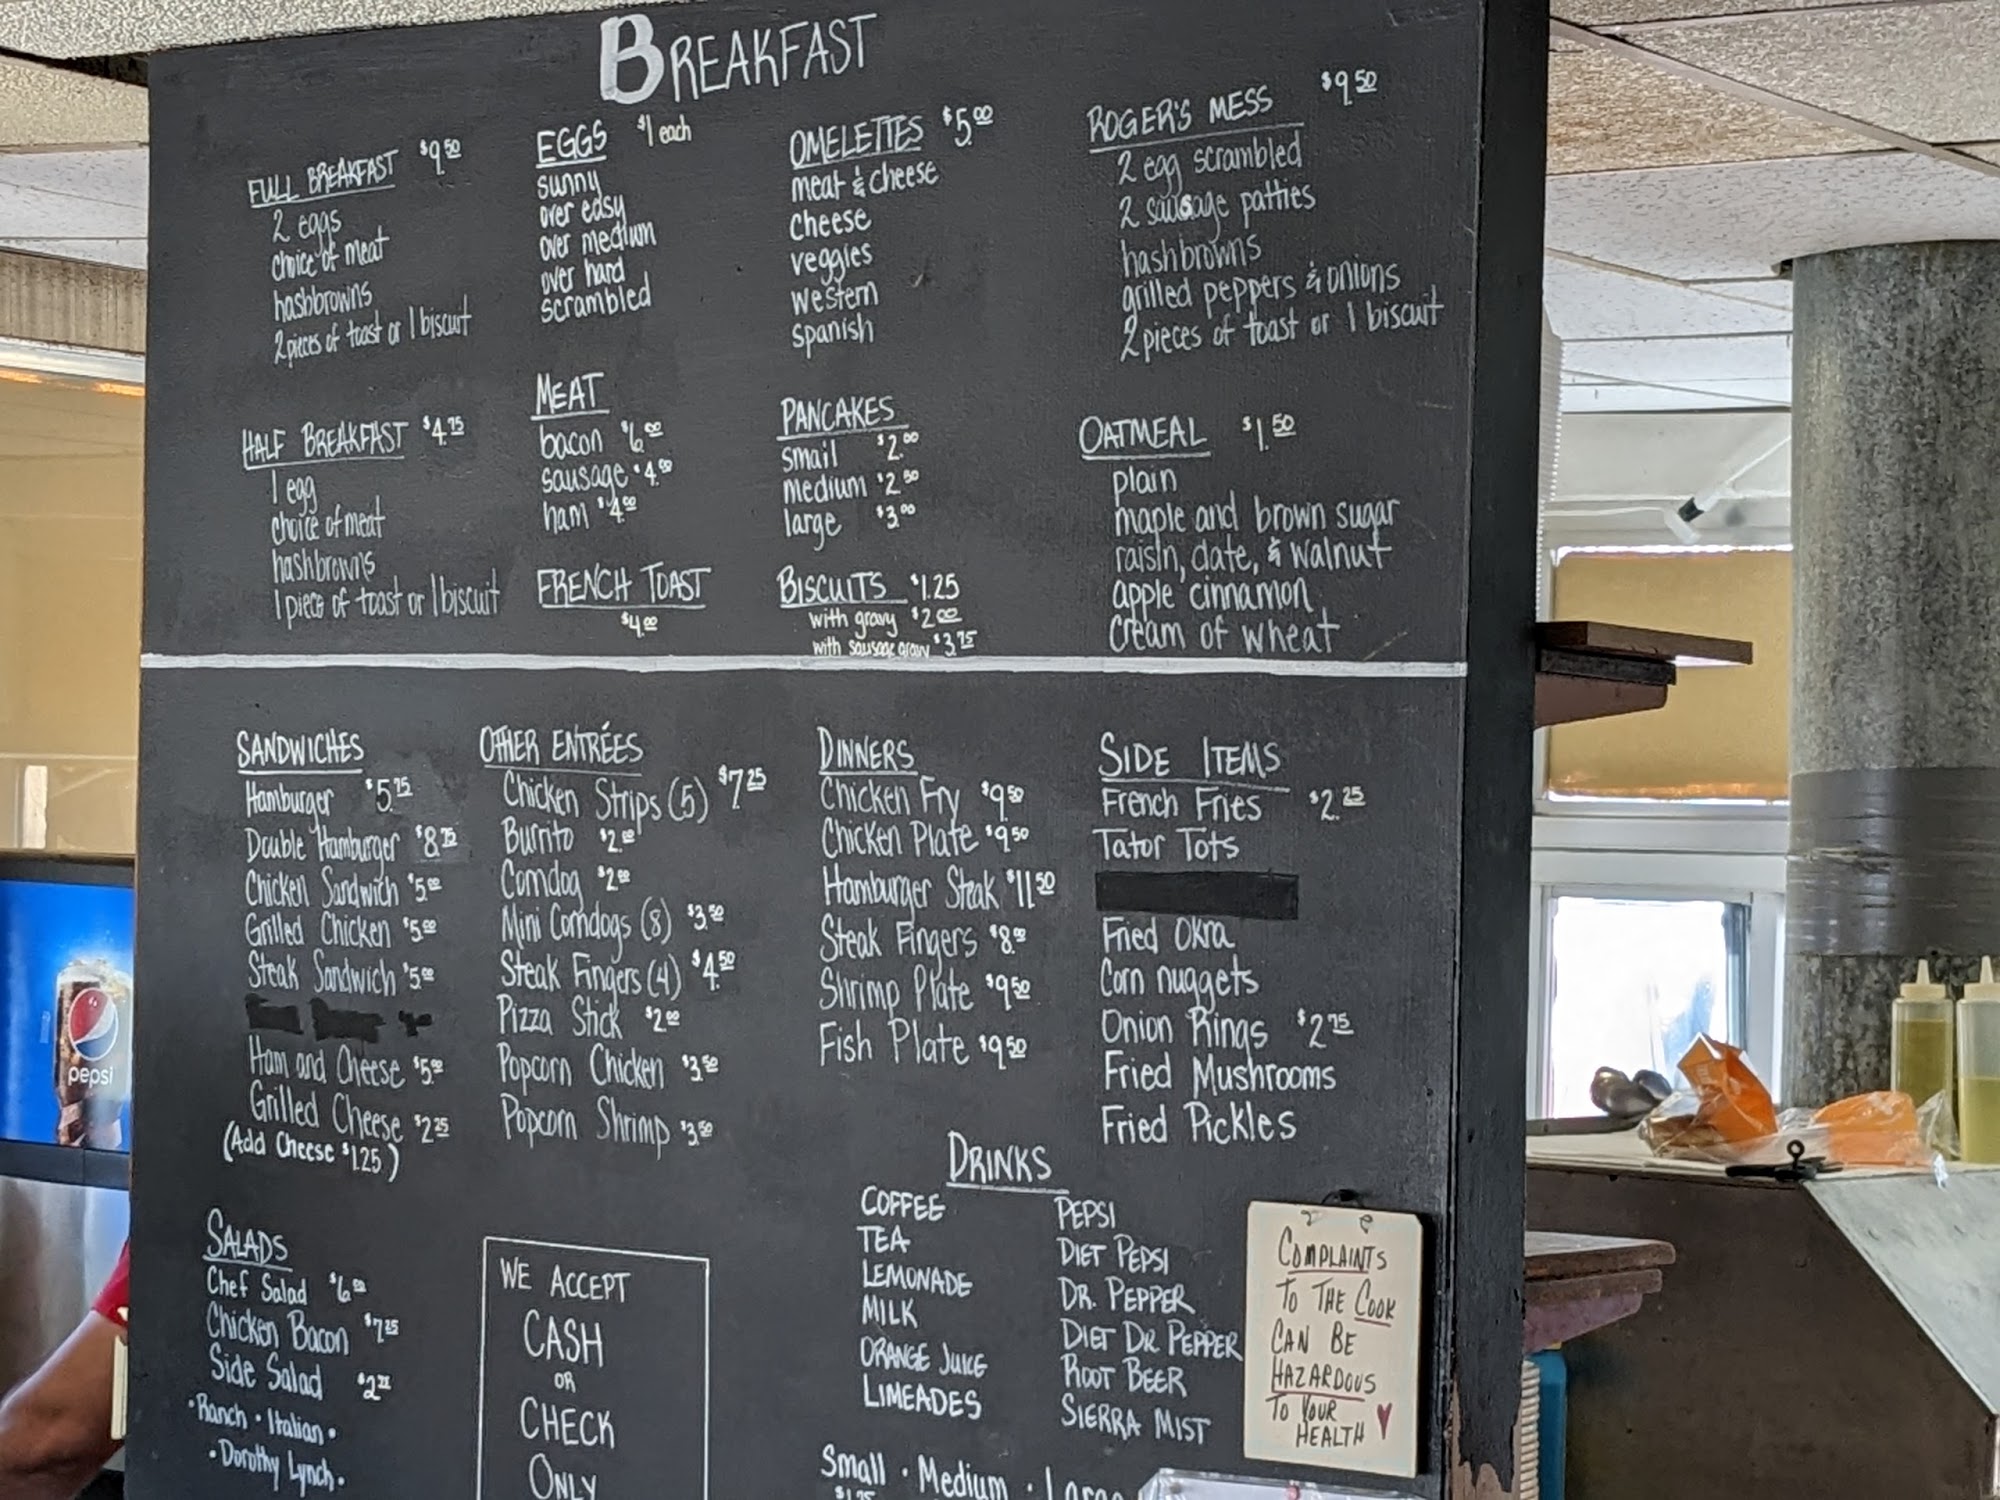 BREAKFAST
FULL BREAKFAST $9.50
2 eggs
choice of meat
hashbrowns
2 pieces of toast or 1 biscuit
HALF BREAKFAST $4.75
1 egg
choice of meat
hashbrowns
1 piece of toast or 1 biscuit
EGGS $1 each
sunny
over easy
over medium
over hard
scrambled
MEAT
bacon $6.00
sausage $4.00
ham $4.00
FRENCH TOAST
$4.00
OMELETTES $5.00
meat & cheese
cheese
veggies
western
spanish
PANCAKES
small $2.00
medium $2.50
large $3.00
BISCUITS $1.25
with gravy $2.00
with sausage gravy $3.75
ROGER'S MESS $9.50
2 egg scrambled
2 sausage patties
hashbrowns
grilled peppers & onions
2 pieces of toast or 1 biscuit
OATMEAL $1.50
plain
maple and brown sugar
raisin, date, & walnut
apple cinnamon
cream of wheat
SANDWICHES
Hamburger $5.75
Double Hamburger $8.75
Chicken Sandwich $5.00
Grilled Chicken $5.00
Steak Sandwich $5.00
Ham and Cheese $5.00
Grilled Cheese $2.25
(Add Cheese $1.25)
SALADS
Chef Salad $6.00
Chicken Bacon $7.25
Side Salad
• Ranch • Italian •
• Dorothy Lynch •
OTHER ENTRÉES
Chicken Strips (5) $7.25
Burrito $2.00
Corndog $2.00
Mini Corndogs (8) $3.50
Steak Fingers (4) $4.50
Pizza Stick $2.00
Popcorn Chicken $3.50
Popcorn Shrimp $3.50
WE ACCEPT
CASH
OR
CHECK
ONLY
DINNERS
Chicken Fry $9.50
Chicken Plate $9.50
Hamburger Steak $11.50
Steak Fingers $8.00
Shrimp Plate $9.50
Fish Plate $9.50
SIDE ITEMS
French Fries $2.25
Tator Tots
Fried Okra
Corn nuggets
Onion Rings $2.75
Fried Mushrooms
Fried Pickles
DRINKS
COFFEE
TEA
LEMONADE
MILK
ORANGE JUICE
LIMEADES
PEPSI
DIET PEPSI
DR. PEPPER
DIET DR PEPPER
ROOT BEER
SIERRA MIST
Small • Medium • Large
COMPLAINTS
TO THE COOK
CAN BE
HAZARDOUS
TO YOUR
HEALTH
pepsi